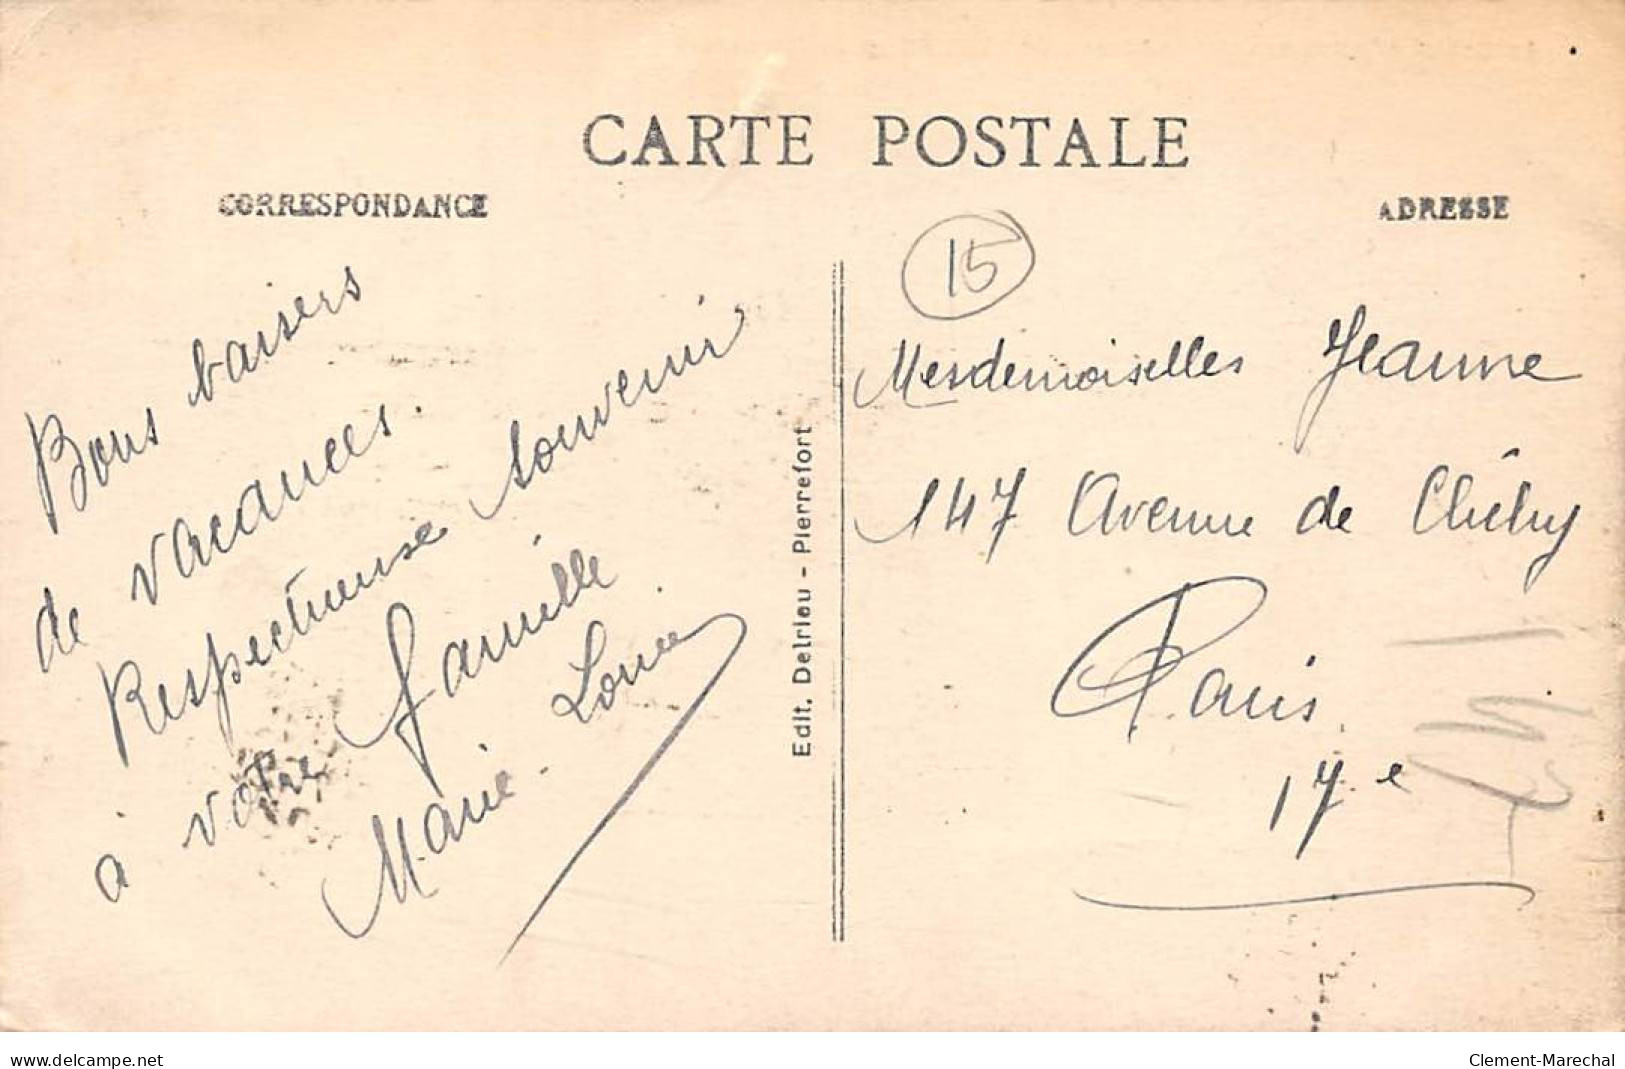 CARTE POSTALE
CORRESPONDANCE
ADRESSE
Bons baisers
de vacances.
Respectueuse souvenir
à votre famille
Marie Louise
Edit. Delriou - Pierrefort
15
Mesdemoiselles Jeanne
147 Avenue de Clichy
Paris
17e
www.delcampe.net
Clement-Marechal